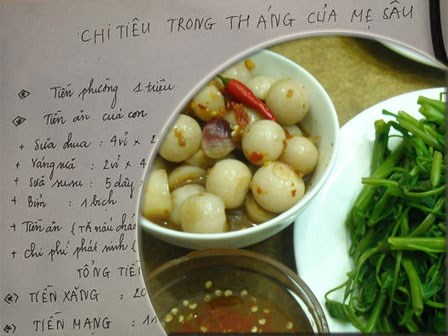 CHI TIÊU TRONG THÁNG CỦA MẸ SÂU
(*) Tiền phường 1 triệu
(*) Tiền ăn của con
+ Sữa chua : 4 vỉ × 2
+ Váng sữa : 2 vỉ × 4
+ Sữa susu : 5 dây
+ Bỉm : 1 bịch
+ Tiền ăn (
+ Chi phí phát sinh (
TỔNG TIỀ
(*) TIỀN XĂNG : 20
(*) TIỀN MẠNG : 1